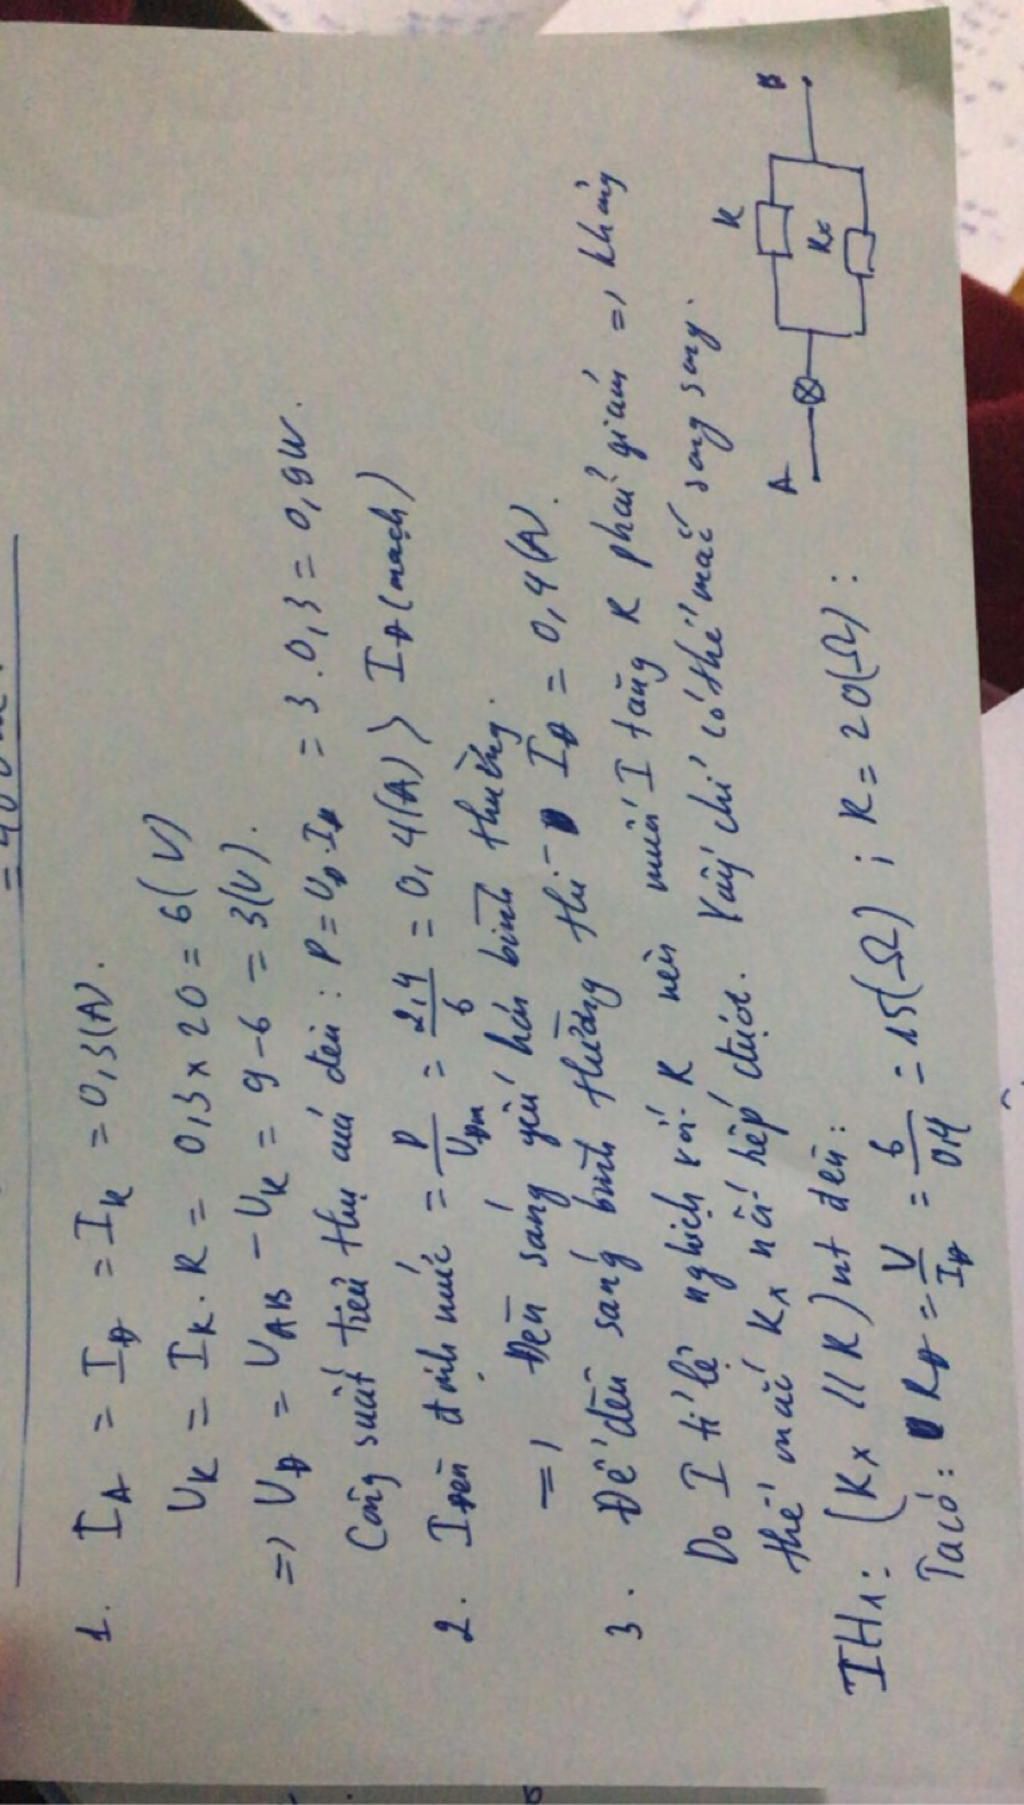 1. I_A = I_Đ = I_R = 0,3(A).
U_R = I_R . R = 0,3 x 20 = 6(V)
=> U_Đ = U_AB - U_R = 9 - 6 = 3(V).
Công suất tiêu thụ của đèn : P = U_Đ . I_Đ = 3 . 0,3 = 0,9W.
2. I_đèn định mức = P/U_đm = 2,4/6 = 0,4(A) > I_Đ (mạch)
=> Đèn sáng yếu hơn bình thường.
3. Để đèn sáng bình thường thì I_Đ = 0,4(A).
Do I tỉ lệ nghịch với R nên muốn I tăng R phải giảm => không
thể mắc Rx nối tiếp được. Vậy chỉ có thể mắc song song.
TH1: (Rx // R) nt đèn:
A
R
Rx
B
Ta có: R_Đ = V/I_Đ = 6/0,4 = 15(Ω) ; R = 20(Ω) :